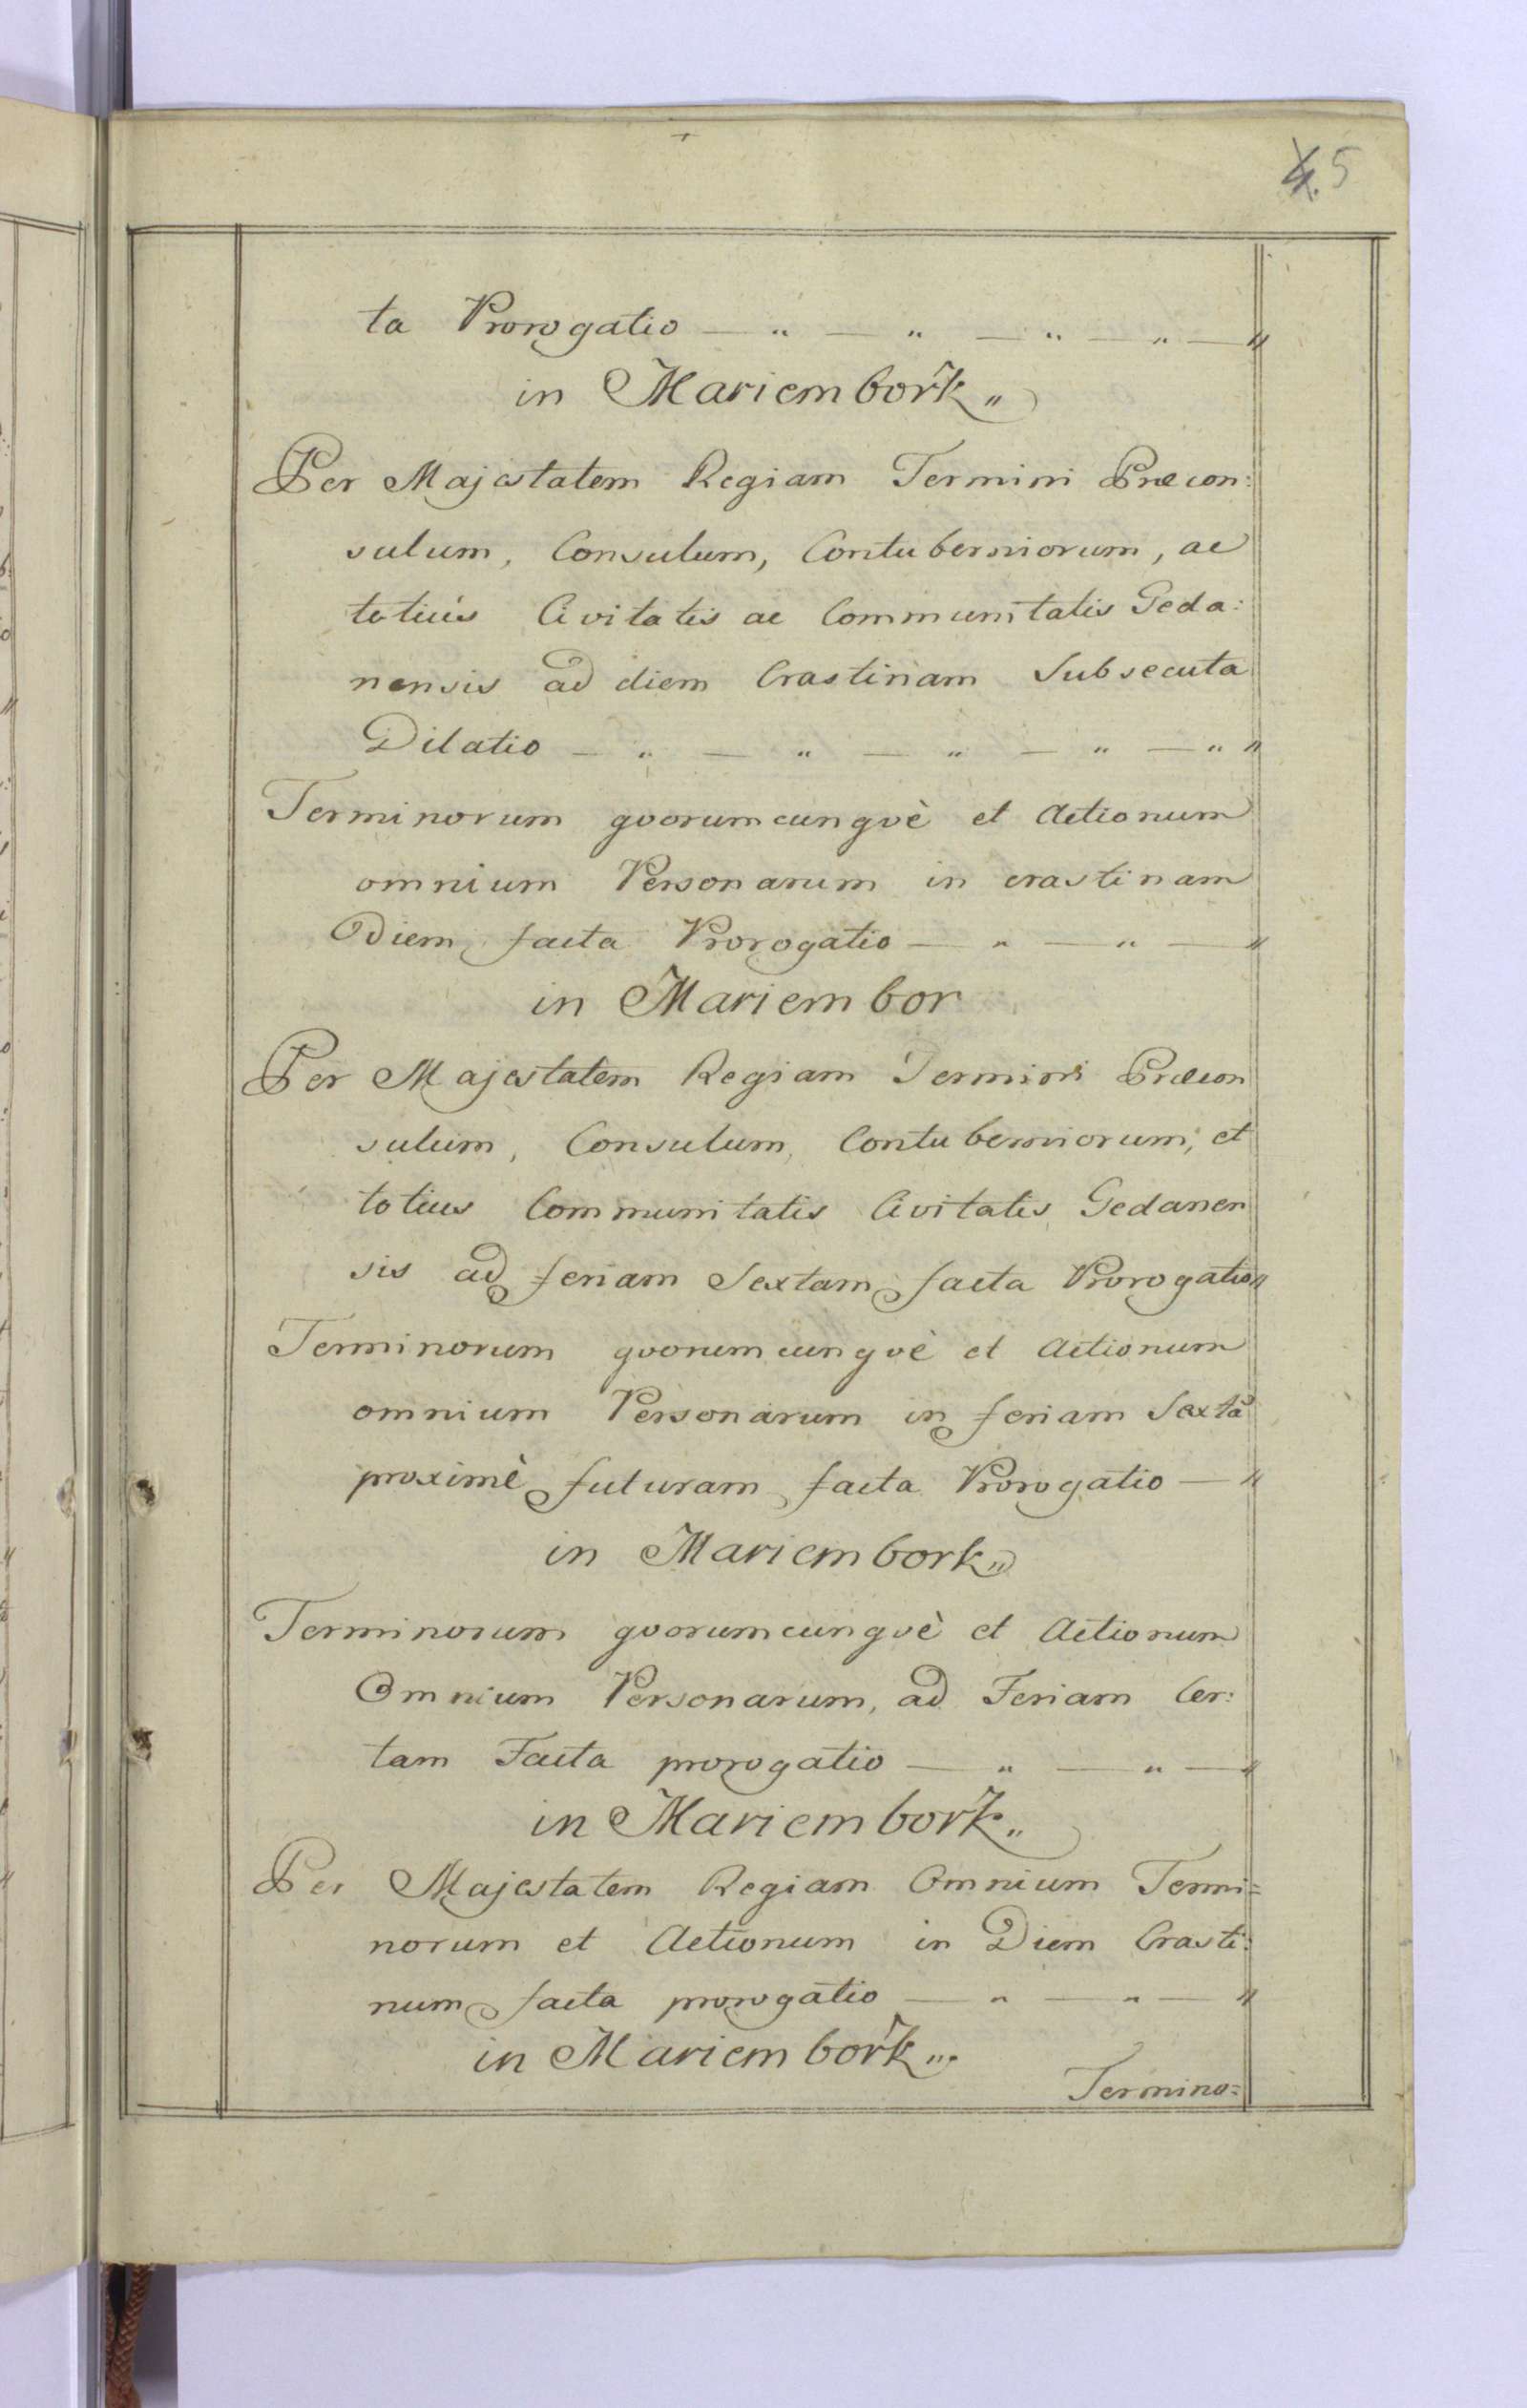 4. 5
ta Prorogatio — „ — „ — „ — „ — „
in Mariembork „
Per Majestatem Regiam Termini Præcon:
sulum, Consulum, Contuberniorum, ac
totius Civitatis ac Communitatis Geda:
nensis ad diem Crastinam Subsecuta
Dilatio — „ — „ — „ — „ — „ „
Terminorum qvorumcunqvè et Actionum
omnium Personarum in crastinam
Diem facta Prorogatio — „ — „ — „
in Mariembor
Per Majestatem Regiam Termini Præcon
sulum, Consulum, Contuberniorum, et
totius Communitatis Civitatis Gedanen
sis ad feriam Sextam facta Prorogatio „
Terminorum qvorumcunqvè et Actionum
omnium Personarum in feriam Sextã
proximè futuram facta Prorogatio — „
in Mariembork „
Terminorum qvorumcunqvè et Actionum
Omnium Personarum, ad Feriam Cer:
tam Facta prorogatio — „ — „ — „
in Mariembork „
Per Majestatem Regiam Omnium Termi=
norum et Actionum in Diem Crasti:
num facta prorogatio — „ — „ — „
in Mariembork „
Termino=